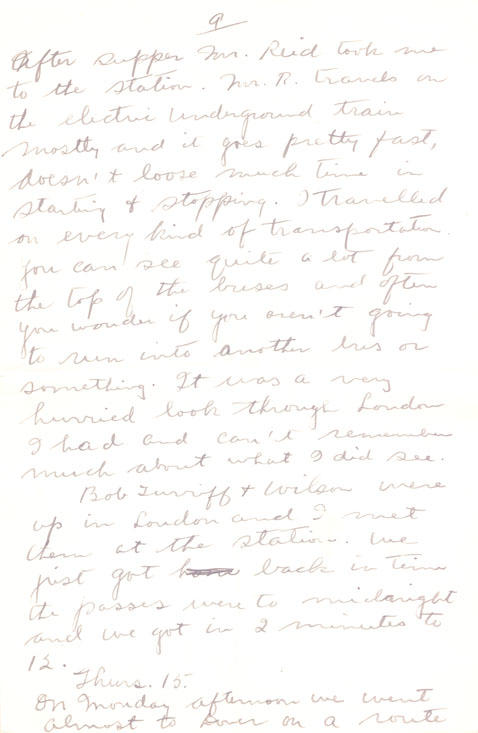 9
After supper Mr. Reid took me
to the station. Mr. R. travels on
the electric Underground train
mostly and it goes pretty fast,
doesn't loose much time in
starting & stopping. I travelled
on every kind of transportation.
You can see quite a lot from
the top of the buses and often
you wonder if you aren't going
to run into another bus or
something. It was a very
hurried look through London
I had and can't remember
much about what I did see.
Bob Turriff & Wilson were
up in London and I met
them at the station. We
just got back in time
the passes were to midnight
and we got in 2 minutes to
12.
Thurs. 15.
On Monday afternoon we went
almost to Dover on a route